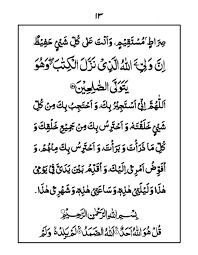 ۱۳
صِرَاطٍ مُّسْتَقِيْمٍ۔ وَاَنْتَ عَلٰى كُلِّ شَيْءٍ حَفِيْظٌ
اِنَّ وَلِيَِّۧ اللّٰهُ الَّذِيْ نَزَّلَ الْكِتٰبَ ۖ وَهُوَ
يَتَوَلَّى الصّٰلِحِيْنَ
اَللّٰهُمَّ اِنِّيْ اَسْتَجِيْرُ بِكَ وَاَحْتَجِبُ بِكَ مِنْ كُلِّ
شَيْءٍ خَلَقْتَهٗ، وَاَحْتَرِسُ بِكَ مِنْ جَمِيْعِ خَلْقِكَ وَ
كُلِّ مَا ذَرَأْتَ وَبَرَأْتَ، وَاَحْتَرِسُ بِكَ مِنْهُمْ، وَ
اُفَوِّضُ اَمْرِيْ اِلَيْكَ، وَاُقَدِّمُ بَيْنَ يَدَيَّ فِيْ يَوْمِيْ
هٰذَا وَلَيْلَتِيْ هٰذِهٖ وَسَاعَتِيْ هٰذِهٖ وَشَهْرِيْ هٰذَا۔
بِسْمِ اللّٰهِ الرَّحْمٰنِ الرَّحِيْمِ
قُلْ هُوَ اللّٰهُ اَحَدٌ اَللّٰهُ الصَّمَدُ لَمْ يَلِدْ وَلَمْ